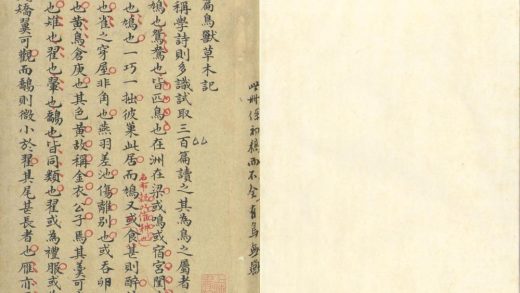 此冊係初稿而不全有鳥無獸
篇鳥獸草木記
稱學詩則多識試取三百篇讀之其為鳥之屬者
鳩也鴛鴦也皆匹鳥也在洲在梁或鳴或宿宮閨
也鳩也一巧一拙彼巢此居而鳩又或食葚則醉
名布穀以催耕也
也雀之穿屋非角也燕羽差池傷離別也或吞卵
也黃鳥倉庚也其色黃故稱金衣公子焉其羹可
也雉也翟也翬也鷮也皆同類也翟或為禮服或
矯翼可觀而鷮則微小於翟其尾甚長者也雁亦